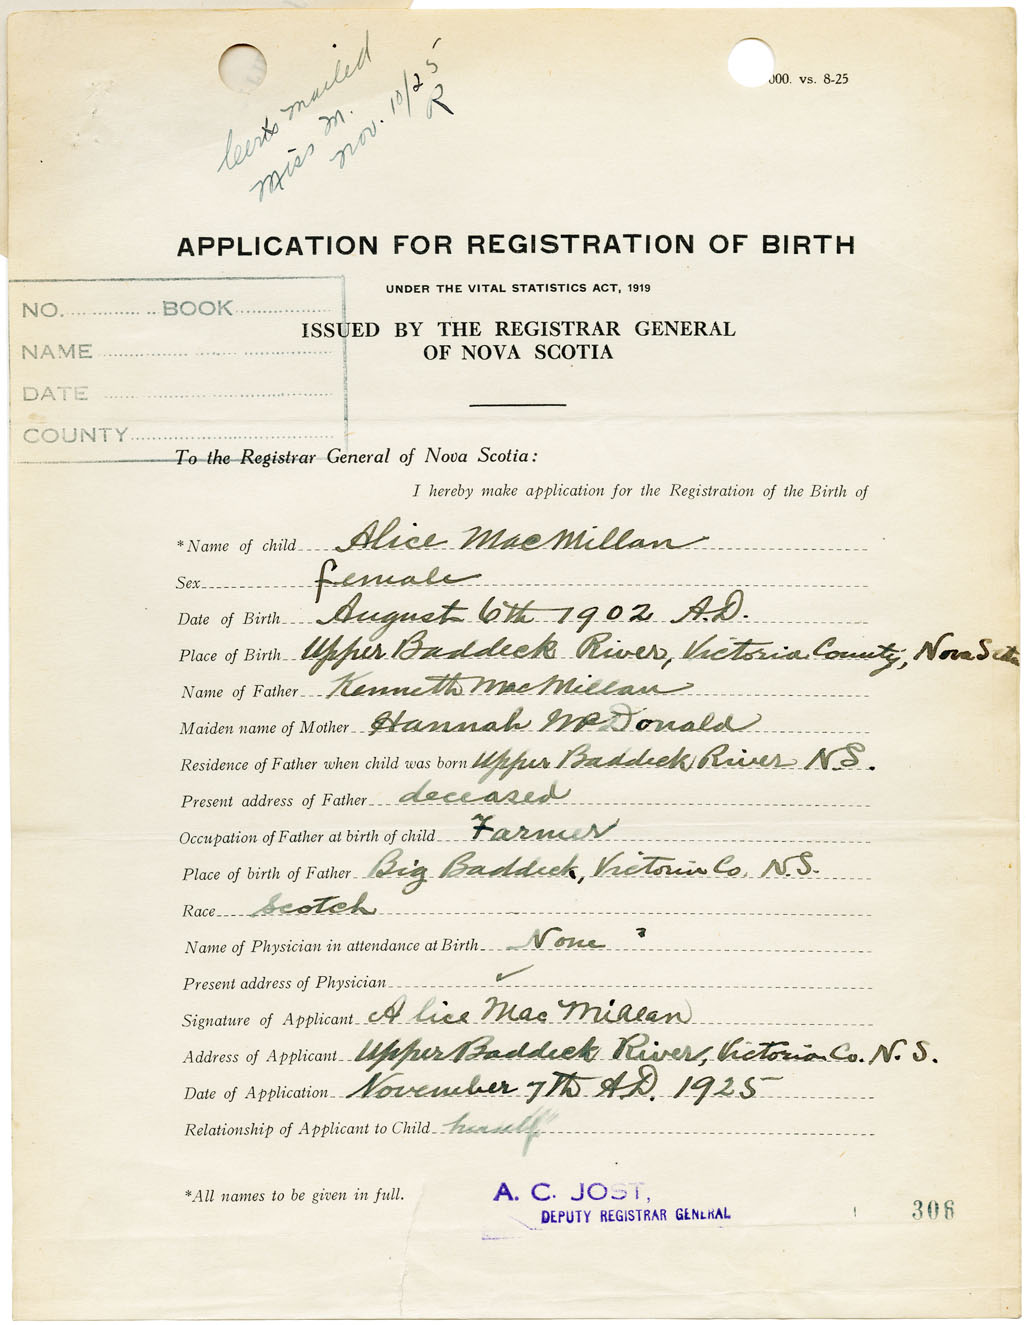 000. vs. 8-25
Certs mailed
Miss M.
Nov. 10/25
R
APPLICATION FOR REGISTRATION OF BIRTH
UNDER THE VITAL STATISTICS ACT, 1919
ISSUED BY THE REGISTRAR GENERAL
OF NOVA SCOTIA
NO. BOOK
NAME
DATE
COUNTY
To the Registrar General of Nova Scotia:
I hereby make application for the Registration of the Birth of
*Name of child Alice MacMillan
Sex female
Date of Birth August 6th 1902 A.D.
Place of Birth Upper Baddeck River, Victoria County, Nova Scotia
Name of Father Kenneth MacMillan
Maiden name of Mother Hannah McDonald
Residence of Father when child was born Upper Baddeck River N.S.
Present address of Father deceased
Occupation of Father at birth of child Farmer
Place of birth of Father Big Baddeck, Victoria Co. N.S.
Race Scotch
Name of Physician in attendance at Birth None ?
Present address of Physician ✓
Signature of Applicant Alice MacMillan
Address of Applicant Upper Baddeck River, Victoria Co. N. S.
Date of Application November 7th A.D. 1925
Relationship of Applicant to Child herself
*All names to be given in full.
A. C. JOST,
DEPUTY REGISTRAR GENERAL
306